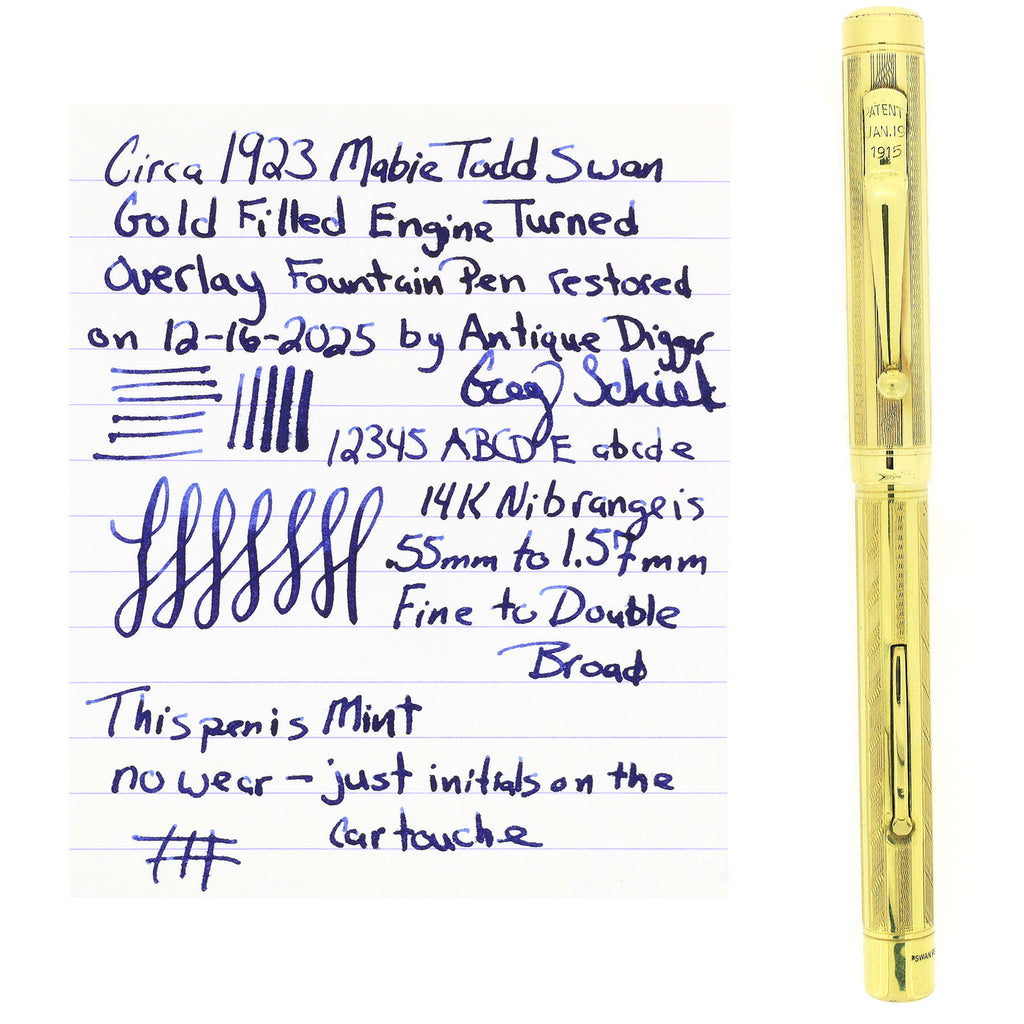 Circa 1923 Mabie Todd Swan
Gold Filled Engine Turned
Overlay Fountain Pen restored
on 12-16-2025 by Antique Digger
Greg
12345 ABCD E abcde
14K Nib range is
.55mm to 1.57mm
Fine to Double
Broad
This pen is Mint
no wear - just initials on the
cartouche
PATENT
JAN.19
1915
SWAN